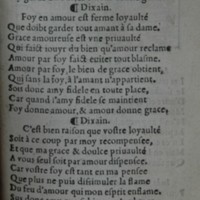 ¶ Dixain.
Foy en amour est ferme loyaulté
Que doibt garder tout amant à sa dame.
Grace amoureuse est vne priuaulté
Qui faict iouyr du bien qu'amour reclame
Amour par foy faict euiter tout blasme.
Amour par foy, le bien de grace obtient,
Qui sans la foy, à l'amant n'appartient,
Soit donc amy fidele en toute place,
Car quand l'amy fidele se maintient
Foy donne amour, & amour donne grace,
¶ Dixain.
C'est bien raison que vostre loyaulté
Soit à ce coup par moy recompensee,
Et que ma grace & doulce priuaulté
A vous seul soit par amour dispensee.
Car vostre foy est tant en ma pensee
Que plus ne puis dissimuler la flame
Du feu d'amour qui mon esprit enflame.